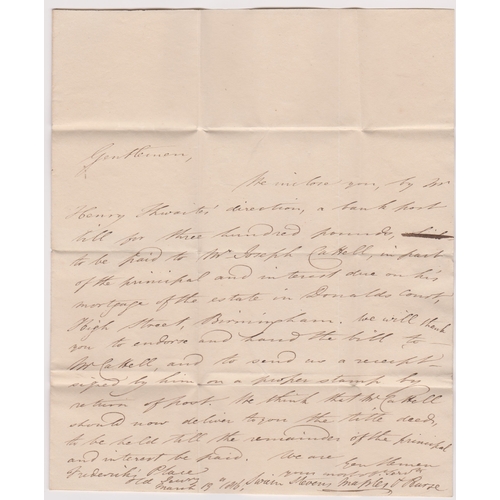 Gentlemen,
We inclose you, by Mr
Henry Thwaites' direction, a bank post
bill for three hundred pounds,
to be paid to Mr Joseph Cattell, in part
of the principal and interest due on his
mortgage of the estate in Donalds Court
High Street, Birmingham. We will thank
you to endorse and hand the bill to
Mr Cattell, and to send us a receipt
signed by him on a proper stamp by
return of post. We think that Mr Cattell
should now deliver to you the title deeds,
to be held till the remainder of the principal
and interest be paid. We are
Gentlemen
your most
Frederick's Place
Old Jewry
March 19
Swain Stevens Maples & Pearse